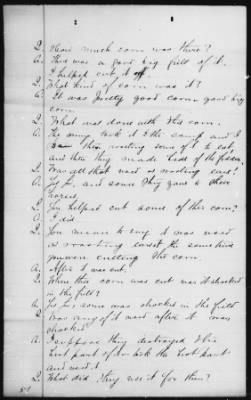 Q. How much corn was there?
A. There was a good big field of it.
I helped cut it off.
Q. What kind of corn was it?
A. It was pretty good corn good big
corn.
Q. What was done with this corn.
A. The army took it to the camp and I
saw them roasting some of it to eat,
and then they made bed of the fodder.
Q. Was all that used as roasting ears?
A. Yes Sir, and some they gave to their
horses.
Q. You helped cut some of this corn?
A. I did.
Q. You mean to say it was used
as roasting ears at the same time
you were cutting the corn.
A. After it was cut.
Q. When this corn was cut was it shocked
in the field?
A. Yes Sir, some was shocked in the field.
Q. Was any of it used after it was
shocked?
A. I suppose they destroyed the
last part of it took the last part
and used it.
Q. What did they use it for then?